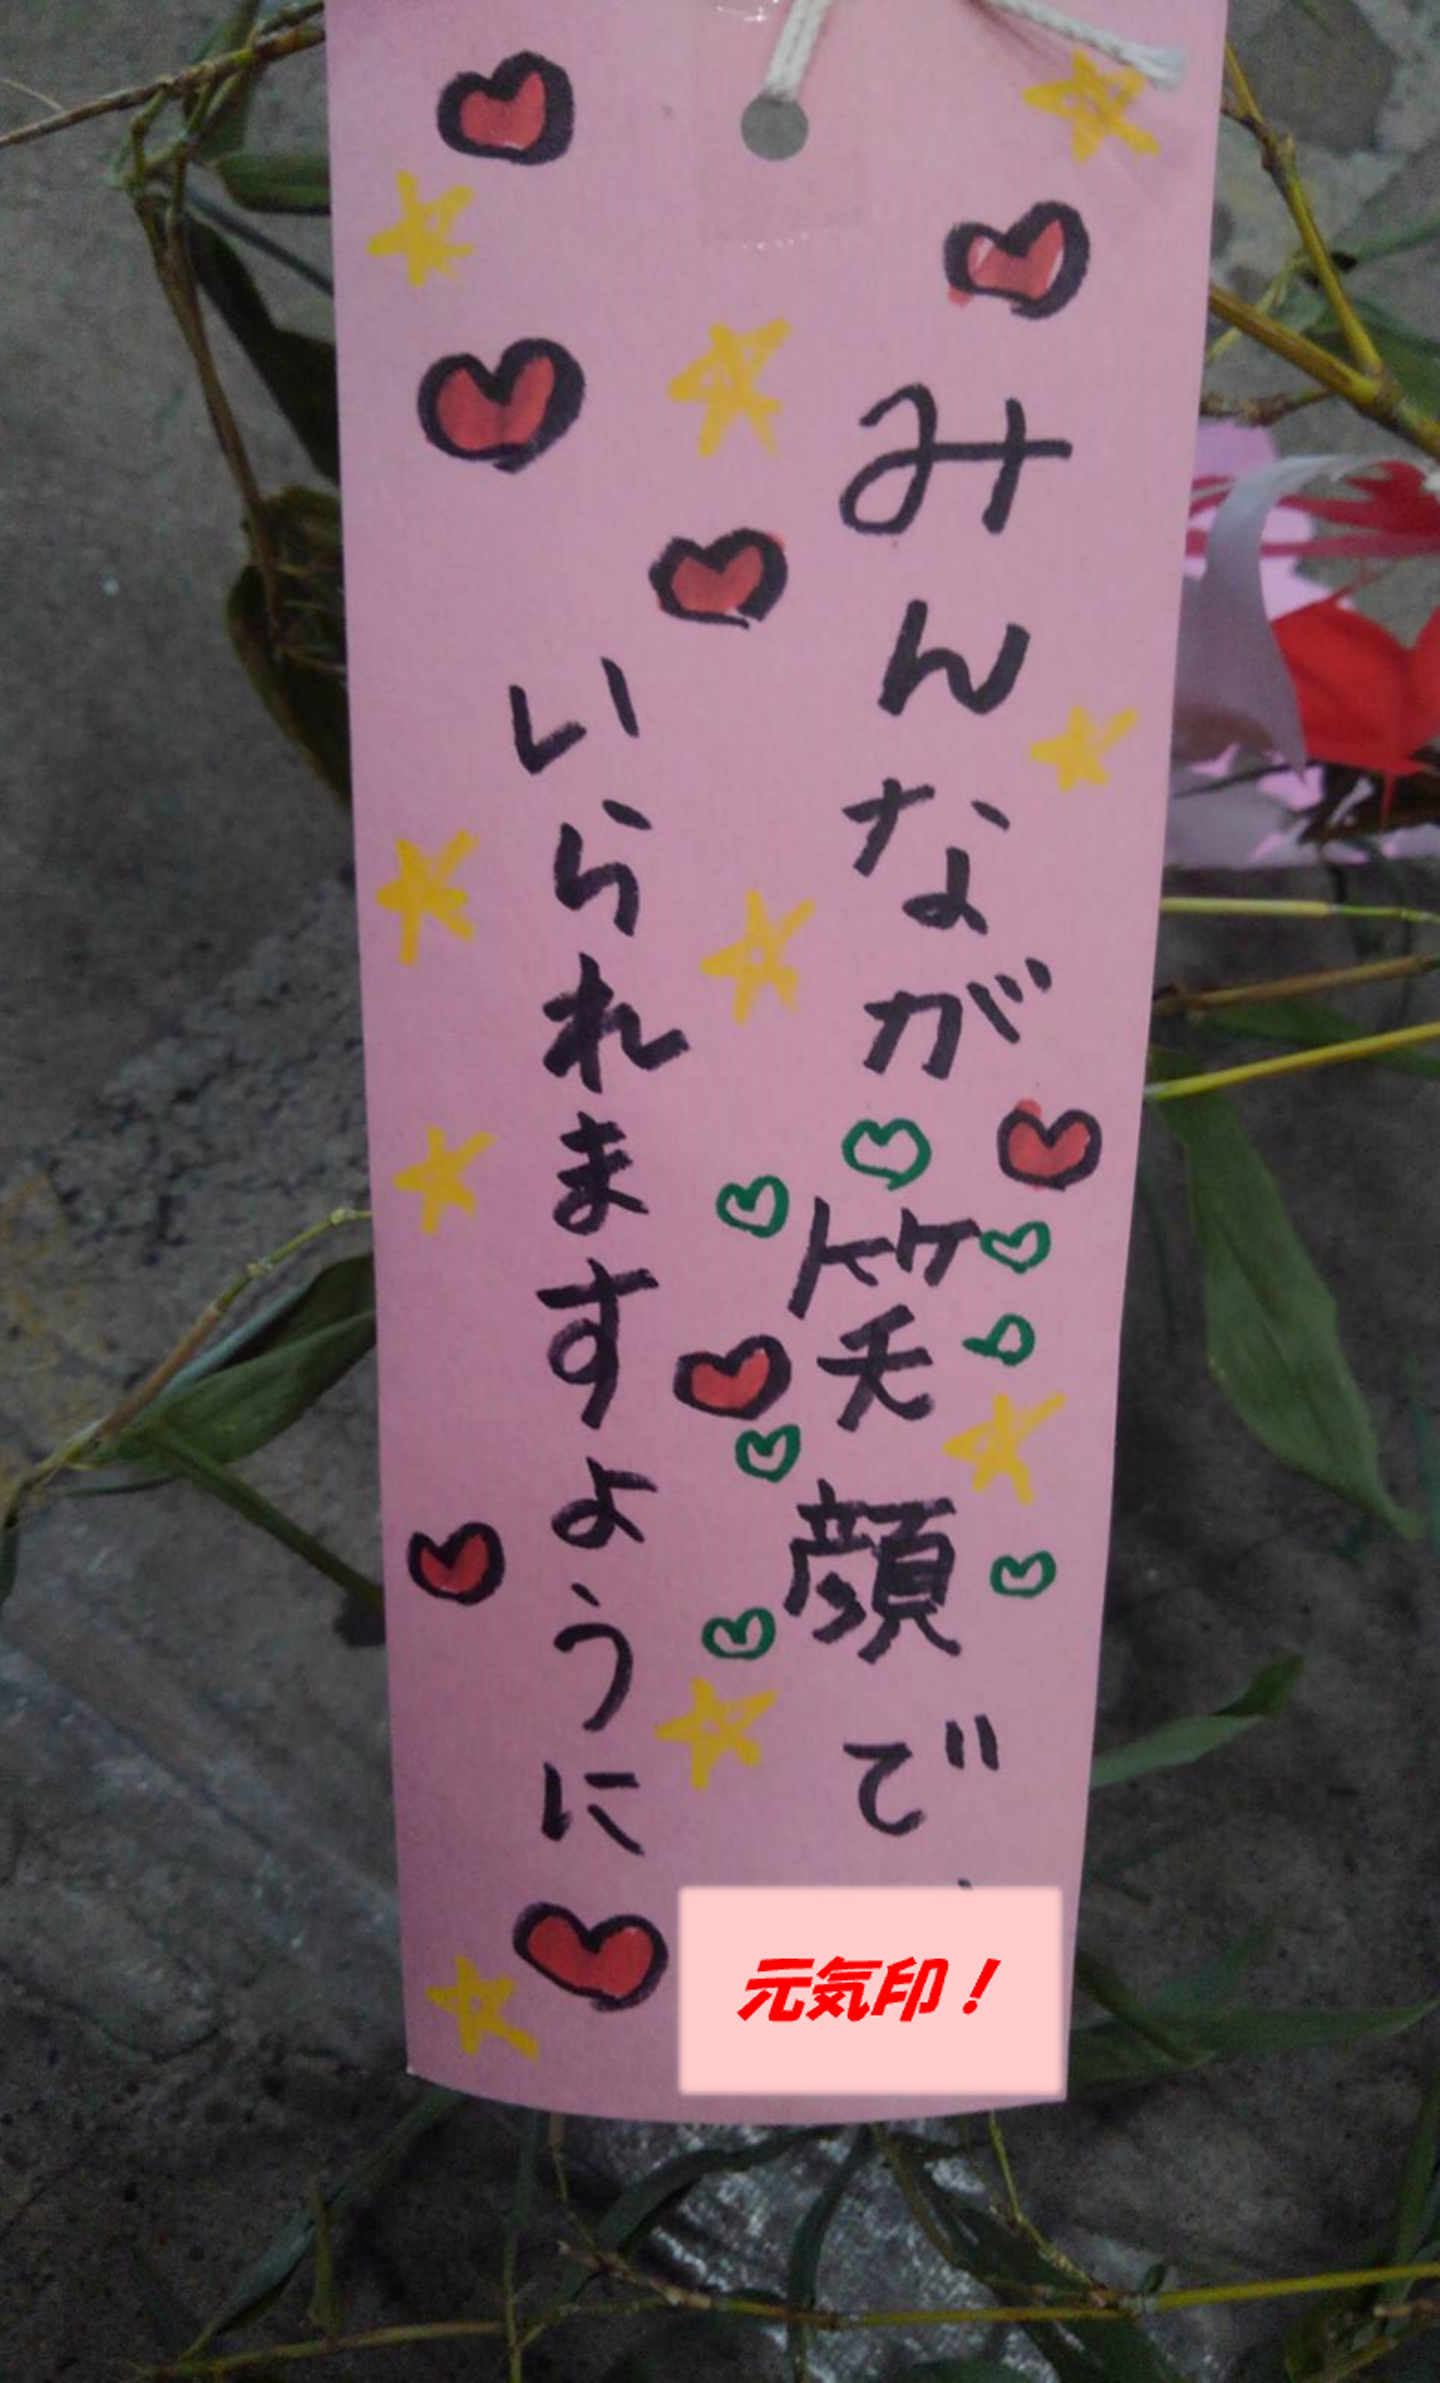 みんなが笑顔で
いられますように
元気印！